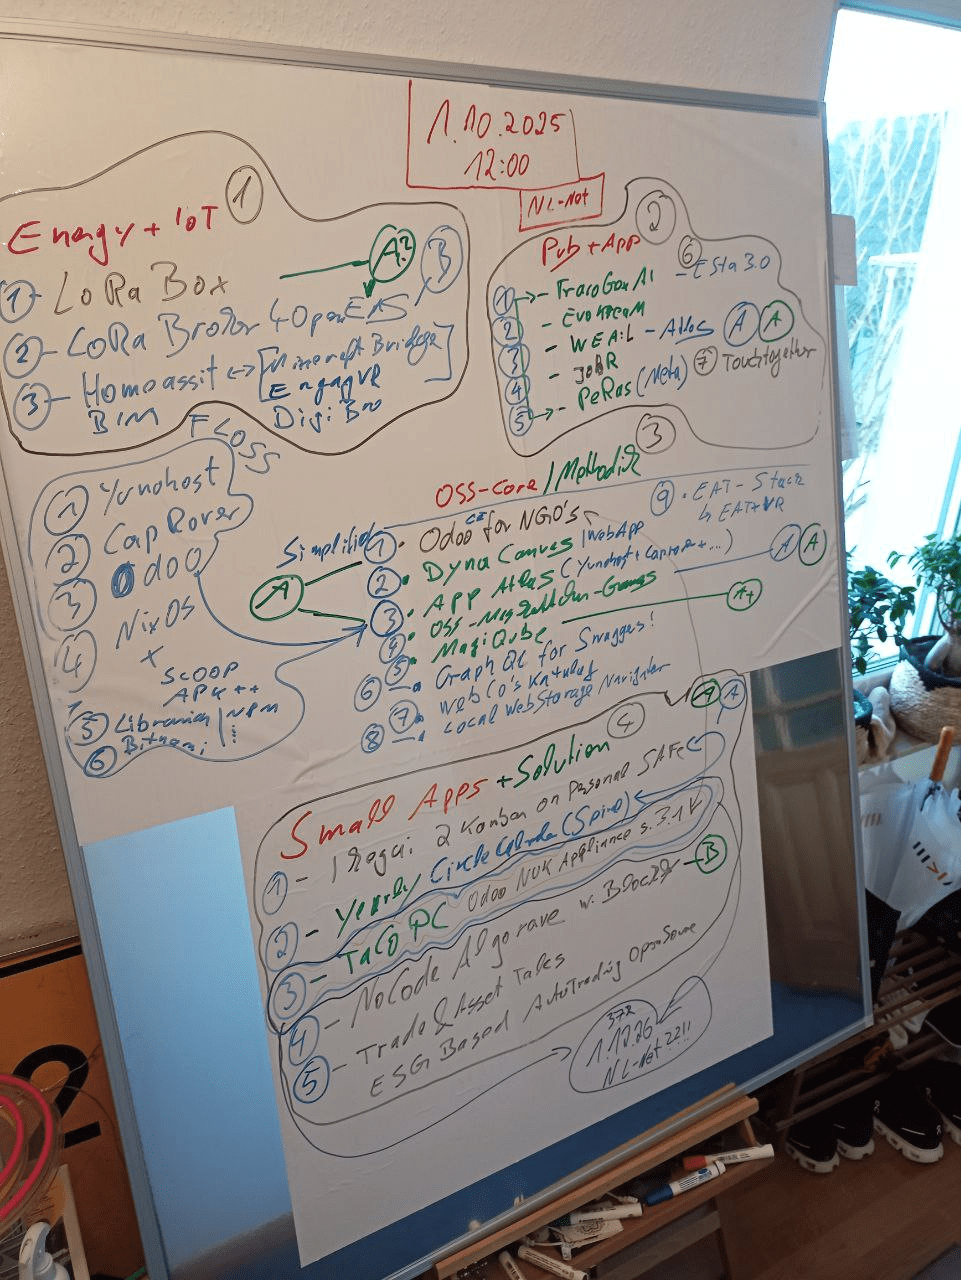 1.10.2025
12:00
NL-Net
1
Energy + IoT
A?
B
1 - LoRa Box
2 - LoRa Broker 4 OpenEMS
3 - Homeassit ↔ [Minecraft Bridge
BIM
EngagVR
DigiBro
2
Pub + App
6 - ESta 3.0
1 - TracoGenAI
2 - EvoStream
3 - WEAiL - Atlas A A
4 - JobR
5 - PeRas (Meta)
7 Touchtogether
FLOSS
1 Yunohost
2 CapRover
3 Odoo
4 NixOS
x
SCOOP
APK ++
5 Libraries | NPM
6 Bitnami
3
OSS-Core / Methodik
Simplified
A
1 • Odoo CE for NGO's
2 • Dyna Canvas | WebApp
3 • App Atlas (Yunohost + Caprover + ...) A A
4 •
5 • MagiQube A+
6 - GraphQL for Swaggers!
7 • WebCo's Katalog
8 - Local WebStorage Navigator
9 • EAT - Stack
↳ EAT + VR
4
A A
Small Apps + Solution
1 - 2 Kanban on Personal SAFe
2 - Yearly Circle (Spiral)
3 - TaCo PC Odoo NUK Appliance s. 3.1
4 - NoCode Algorave w. B
5 - Trade & Asset Tales
ESG Based AutoTrading OpenSource
1.12.26
NL-Net ??!!